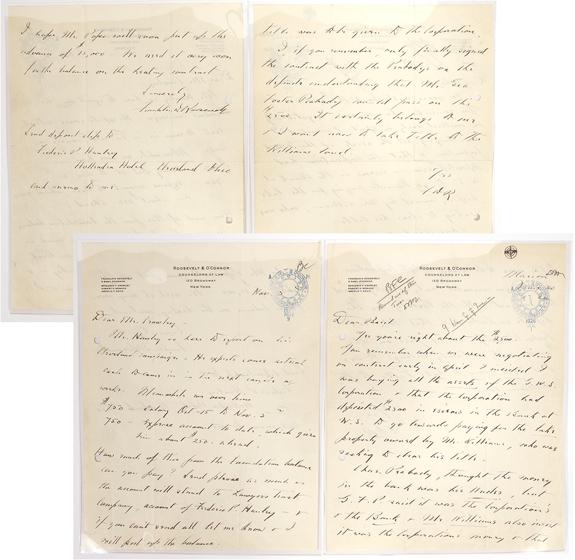 I hope Mr. Pope will soon put up the
advance of $15,000 We need it very soon
for the balance on the heating contract.
Sincerely
Franklin D Roosevelt
Send deposit slip to
Frederic P. Hanley
Hollenden Hotel Cleveland Ohio
and memo to me.
title was to be given to the Corporation.
I, if you remember, only finally signed
the contract with the Peabodys on the
definite understanding that Mr. Geo
Foster Peabody would pass on this
$2500. It certainly belongs to me
+ I want now to take title to the
Williams land.
FDR
ROOSEVELT & O'CONNOR
COUNSELORS OF LAW
120 BROADWAY
NEW YORK
FRANKLIN D. ROOSEVELT
D. BASIL O'CONNOR
Nov.
Dear Mr.
Mr. Hanley is here to report on his
Cleveland campaign. He expects some actual
cash to come in in the next couple of
weeks. Meanwhile we owe him
$750 - Salary Oct 15 to Nov. 5
750 - Expense account to date, which gives
him about $250. ahead.
How much of this from the Foundation balance
can you pay? Send please as much as
the account will stand to Lawyers Trust
Company, account of Frederic P. Hanley - +
if you can't send all let me know + I
will put up the balance.
ROOSEVELT & O'CONNOR
COUNSELORS OF LAW
120 BROADWAY
NEW YORK
FRANKLIN D. ROOSEVELT
D. BASIL O'CONNOR
Marion
1926
Dear
Yes you're right about the $2500.
You remember when we were negotiating
on contract early in April I insisted I
was buying all the assets of the G.W.S.
Corporation + that the Corporation had
deposited $2500 in escrow in the Bank at
W.S. to go towards paying for the lake
property owned by Mr. Williams, who was
seeking to clear his title.
Chas. Peabody thought the money
in the bank was his, but
G.F.P. said it was the Corporation's
+ the Bank + Mr Williams also insist
it was the Corporation's money + that